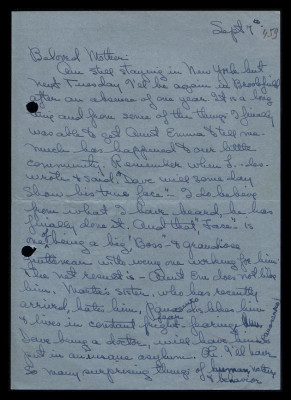 Sept 7th
Beloved Mother:
Am still staying in New York but
next Tuesday I'll be again in Brookfield
after an absence of one year. It is a long
time and from some of the things I finally
was able to get Aunt Emma to tell me -
much has happened to our little
community. Remember when I - des-
wrote & said, "Dave will some day
show his true face" - I do believe
from what I have heard, he has
finally done it. And that "Face" is
of being a big "Boss" & grandiose
with every one working for him.
The net result is - Aunt Em does not like
him. Martha's sister, who has recently
arrived, hates him, dislikes him
& lives in constant fright - fearing
Dave being a doctor, will have him
put in an insane asylum. I'll have
so many surprising things of human nature
& behavior